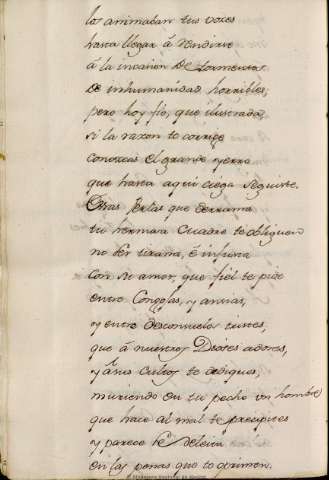 los animaban tus voces
hasta llegar á rendirse
á la invasion de tormentos
de inhumanidad horribles;
pero hoy fio, que ilustrada,
si la razon te corrige
conozcas el grande yerro
que hasta aqui ciega seguiste.
Estas perlas que derrama
tu hermosa Madre te obliguen
no ser tirana, é impia
con su amor, que fiel te pide
entre Congojas, y ansias,
y entre desconsuelos tristes,
que á nuestros Dioses adores,
y á sus cultos te dediques,
muriendo en tu pecho un hombre
que hace al mal te precipites
y parece se deleita
en las penas que te oprimen.